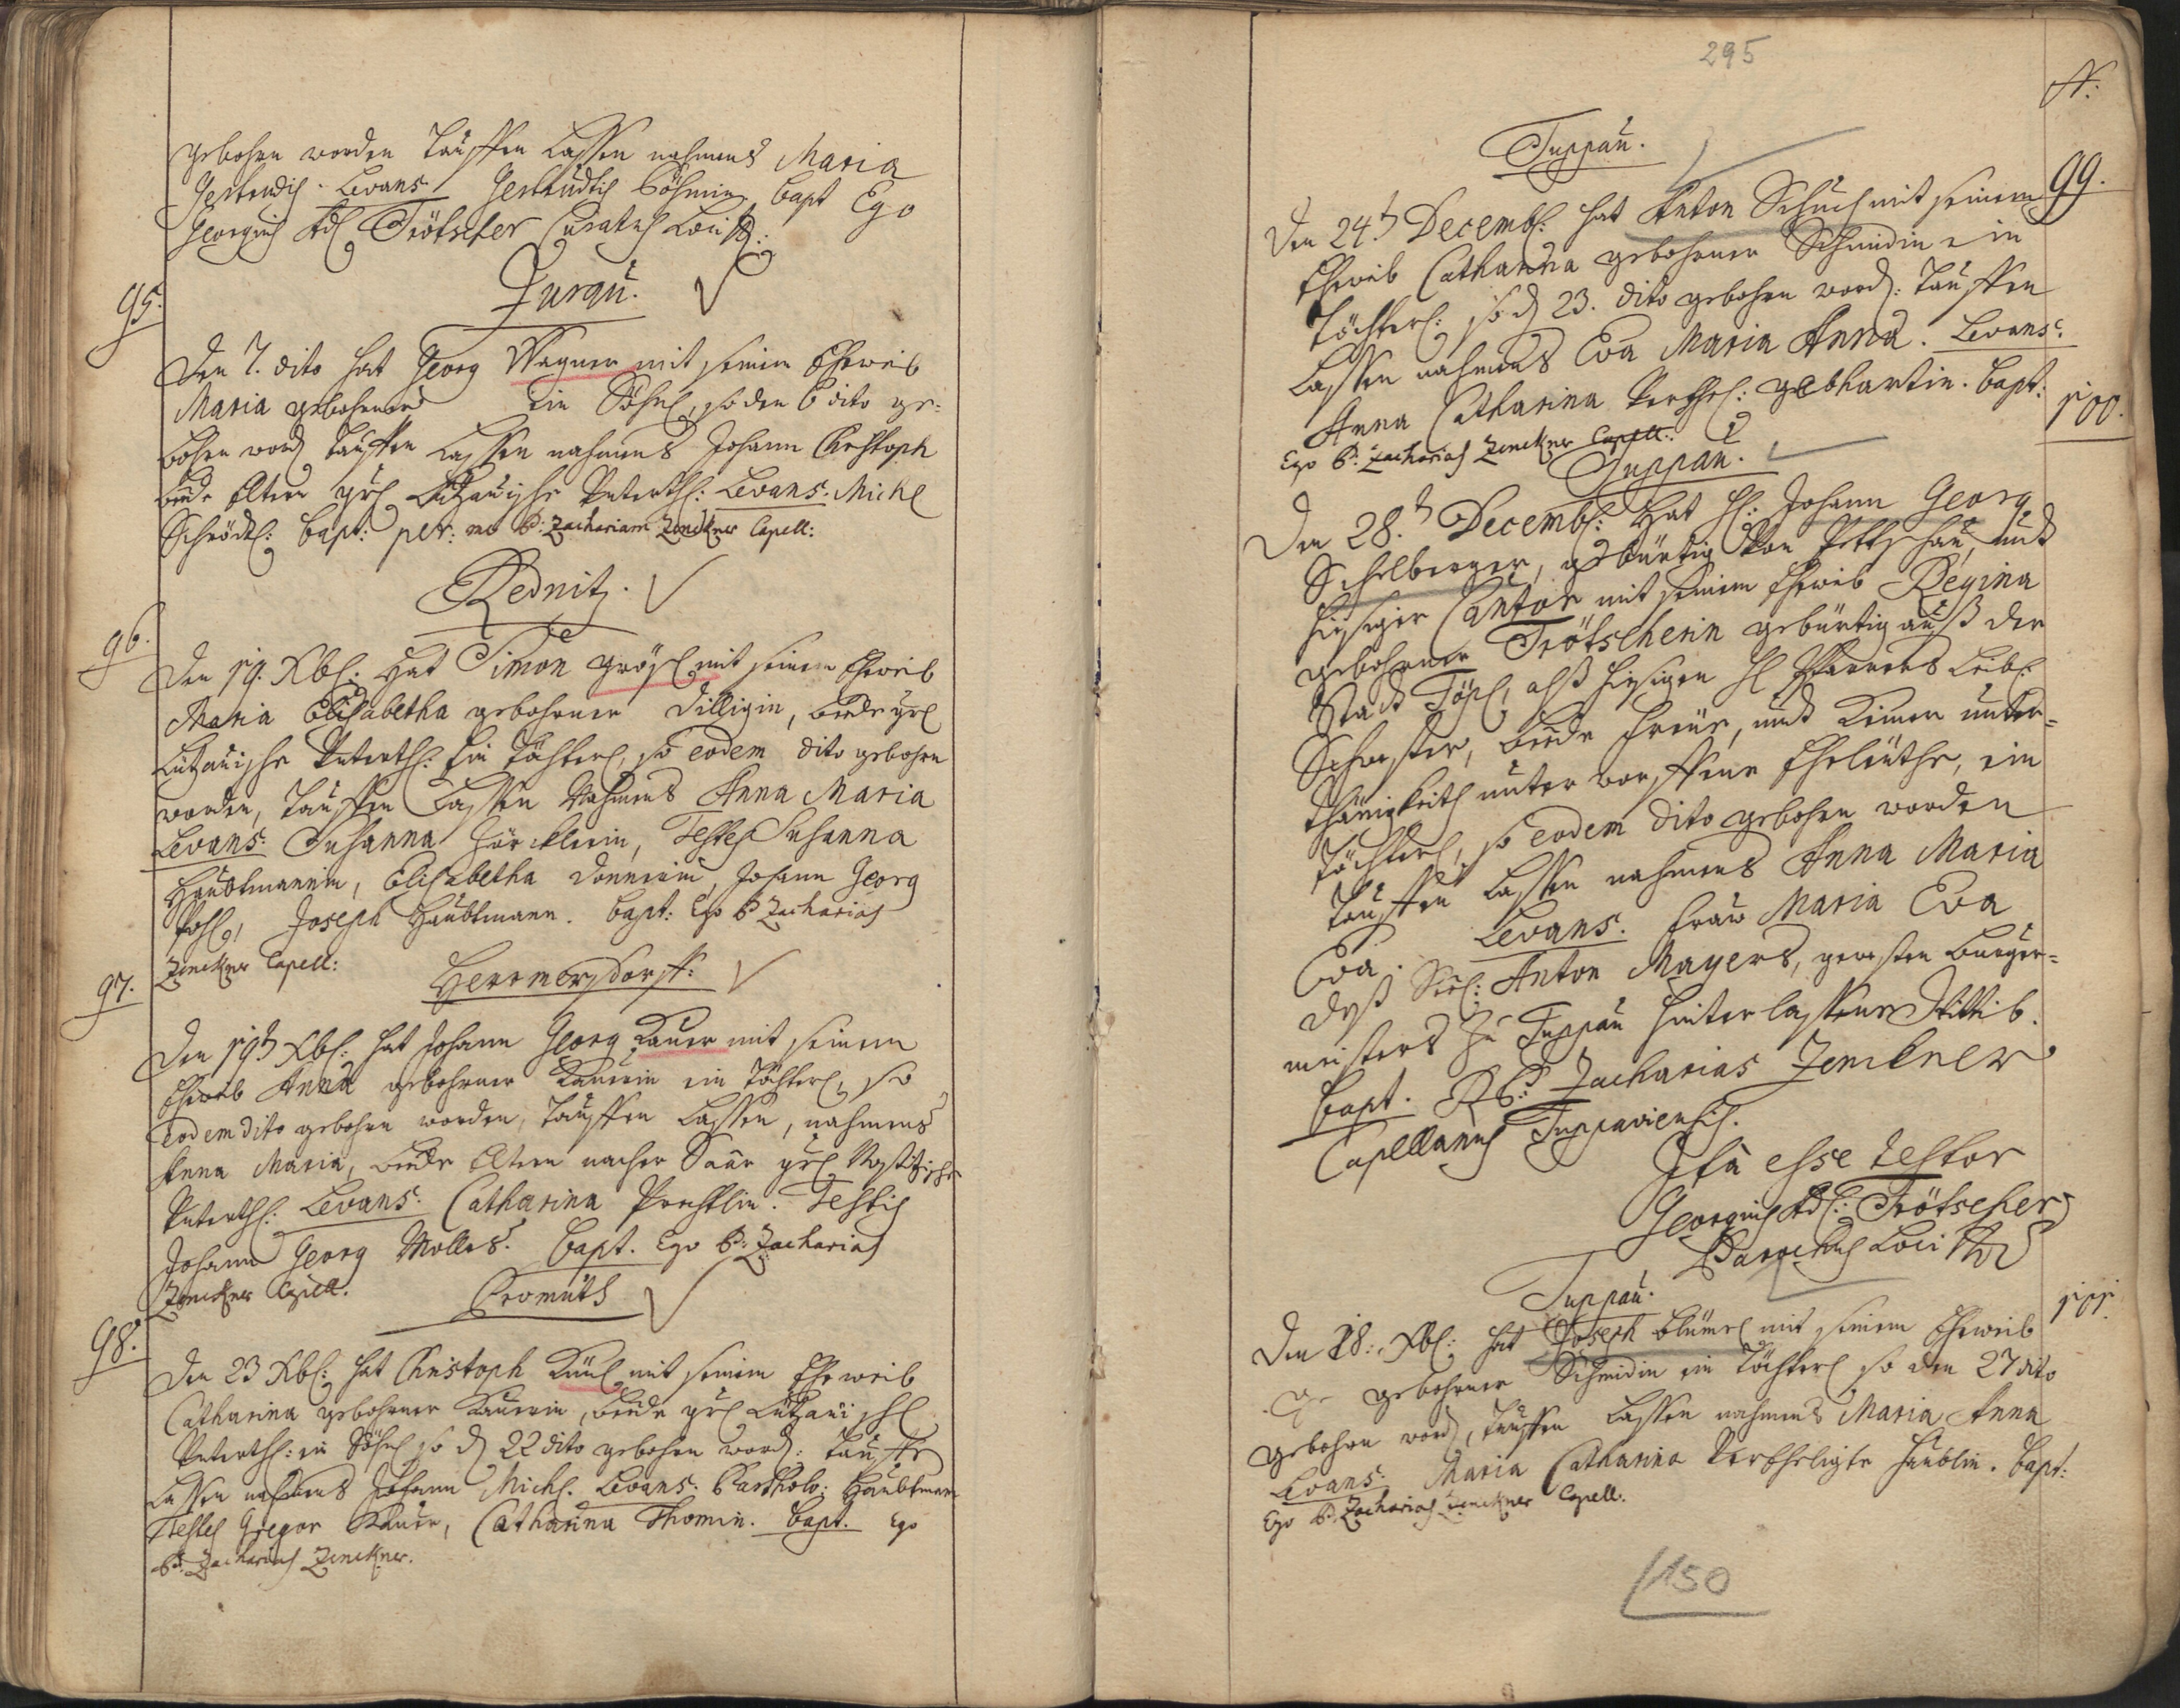 gebohren worden tauffen lassen nahmens Maria
Gertrudis. Levans Gertrudis Böhmin, bapt Ego
Georgius Ad. Trötscher Curatus Loci
Turau.
95.
Den 7. dito hat Georg Wagner mit seinem Eheweib
Maria gebohrner ein Söhnl, so den 6 dito ge=
bohren word. tauffen lassen nahmens Johann Christoph
beede Eltern Unterth: Levans. Michl
Schrödl: bapt: per: me P: Zachariam Zenckner Capell:
Rednitz.
96.
Den 19. Xbr: hat Simon Grösl mit seinem Eheweib
Maria Elisabetha gebohrner Dilligin, beede
Unterth: ein Töchterl, so eodem dito gebohren
worden, tauffen lassen Nahmens Anna Maria
Levans: Susanna Testes Susanna
Haubtmannin, Elisabetha Donnerin, Johann Georg
Pohl, Joseph Haubtmann. bapt: Ego P Zacharias
Zenckner Capell:
Herrmersdorff:
97.
Den 19t Xbr: hat Johann Georg Lauer mit seinem
Eheweib Anna gebohrner ein Töchterl, so
eodem dito gebohren worden, tauffen lassen, nahmens
Anna Maria, beede Eltern
Unterth: Levans: Catharina Testis
Johann Georg Molles. bapt. Ego P: Zacharias
Zenckner Capell.
Promuth
98.
Den 23 Xbr: hat Christoph mit seinem Eheweib
Catharina gebohrner beede
Unterth: ein Söhnl so d 22 dito gebohren word: tauffe
lassen nahmens Johann Michl. Levans: Bartholo: Haubtman
Testes Gregor Catharina Thomin. bapt. Ego
P: Zacharias Zenckner.
295
N:
Tuppau.
99.
Den 24t Decembr: hat Anton Schuch mit seinem
Eheweib Catharina gebohrner Schmidin ein
Töchterl: so d 23. dito gebohren word: tauffen
lassen nahmens Eva Maria Anna. Levans:
Anna Catharina Gebhartin. bapt:
Ego P: Zacharias Zenckner Capell:
Tuppau.
100.
Den 28t Decembr: hat H: Johann Georg
Schelberger, gebürtig von und
hiesiger Cantor mit seinem Eheweib Regina
gebohrner Trötscherin gebürtig auß der
Stadt Töpl, alß hiesigen H Pfarrers Leibl:
Schwester, beede freue, und keiner unter=
thänigkeit unterworffene Eheleuthe, ein
Töchterl, so eodem dito gebohren worden
tauffen lassen nahmens Anna Maria
Eva. Levans. Fraw Maria Eva
deß Seel: Anton Mayers, gewesten burger=
meisters zu Tuppau hinterlassene Wittib.
bapt. P: Zacharias Zenckner
Capellanus Tuppaviensis.
Ita esse testor
Georgius Ad: Trötscher
Parochus Loci
Tuppau.
101.
Den 28: Xbr: hat Joseph Blümel mit seinem Eheweib
gebohrner Schmidin ein Töchterl so den 27 dito
gebohren word, tauffen lassen nahmens Maria Anna
Levans: Maria Catharina Verehligte bapt:
Ego P: Zacharias Zenckner Capell.
150